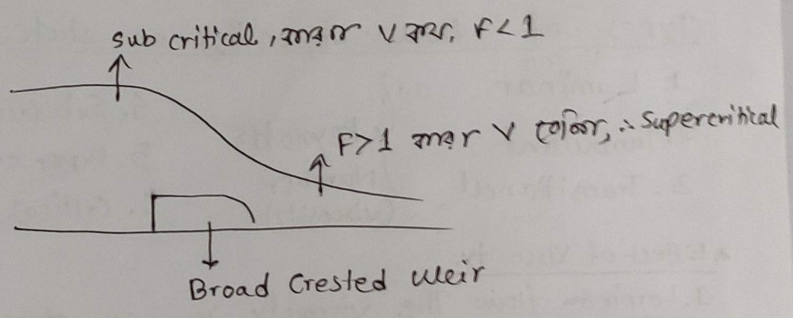 sub critical, কারন v কম, F<1
F>1 কারন v বেশি, ∴ Supercritical
Broad Crested Weir